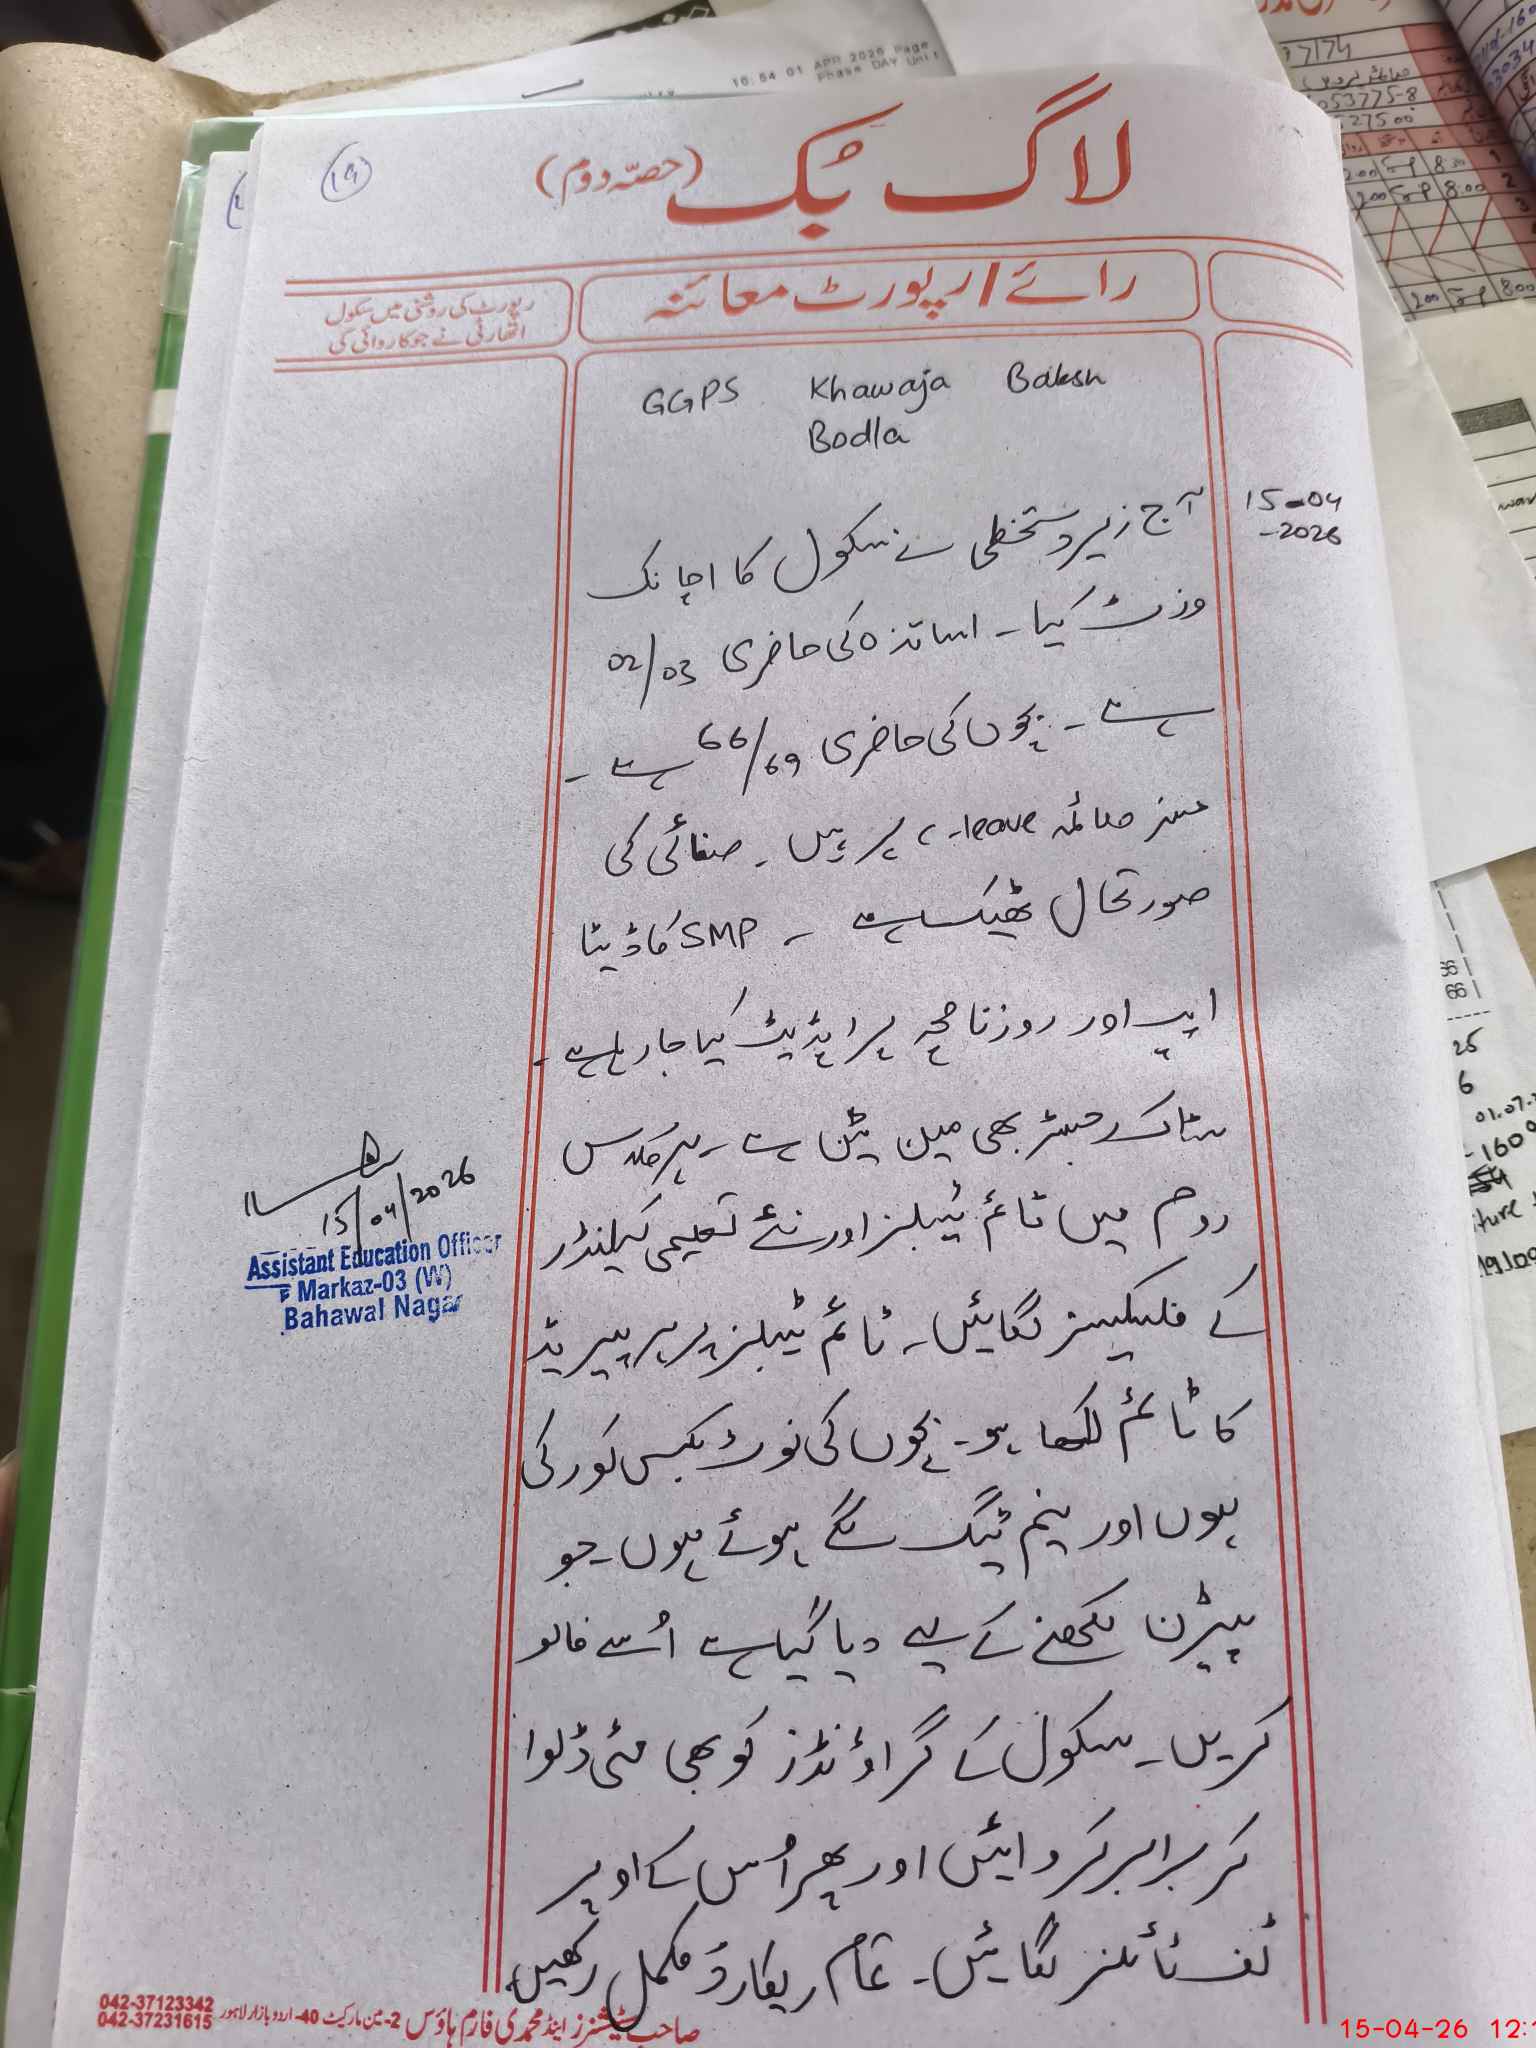 16:54 01 APR 2026 Page
Phase DAY Unit
19
لاگ بُک (حصّہ دوم)
رائے / رپورٹ معائنہ
رپورٹ کی روشنی میں سکول
اتھارٹی نے جو کاروائی کی
GGPS Khawaja Baksh
Bodla
15-04
-2026
آج زیر دستخطی نے سکول کا اچانک
وزٹ کیا ۔ اساتذہ کی حاضری 02/03
ہے ۔ بچوں کی حاضری 66/69 ہے ۔
مسز صائمہ leave پر ہیں ۔ صفائی کی
صورتحال ٹھیک ہے ۔ SMP کا ڈیٹا
ایپ اور روزنامچہ پر اپڈیٹ کیا جا رہا ہے ۔
سٹاک رجسٹر بھی مین ٹین ہے ۔ ہر کلاس
روم میں ٹائم ٹیبلز اور نئے تعلیمی کیلنڈر
کے فلیکسز لگائیں ۔ ٹائم ٹیبلز پر ہر پیریڈ
کا ٹائم لکھا ہو ۔ بچوں کی نوٹ بکس کور کی
ہوں اور نیم ٹیگ لگے ہوئے ہوں ۔ جو
پیٹرن لکھنے کے لیے دیا گیا ہے اُسے فالو
کریں ۔ سکول کے گراؤنڈز کو بھی مٹی ڈلوا
کر برابر کروائیں اور پھر اُس کے اوپر
ٹف ٹائلز لگائیں ۔ تمام ریکارڈ مکمل رکھیں
15/04/2026
Assistant Education Officer
Markaz-03 (W)
Bahawal Nagar
صاحب سٹیشنرز اینڈ محمدی فارم ہاؤس 2-مین مارکیٹ 40-اردو بازار لاہور
042-37123342
042-37231615
15-04-26 12:1